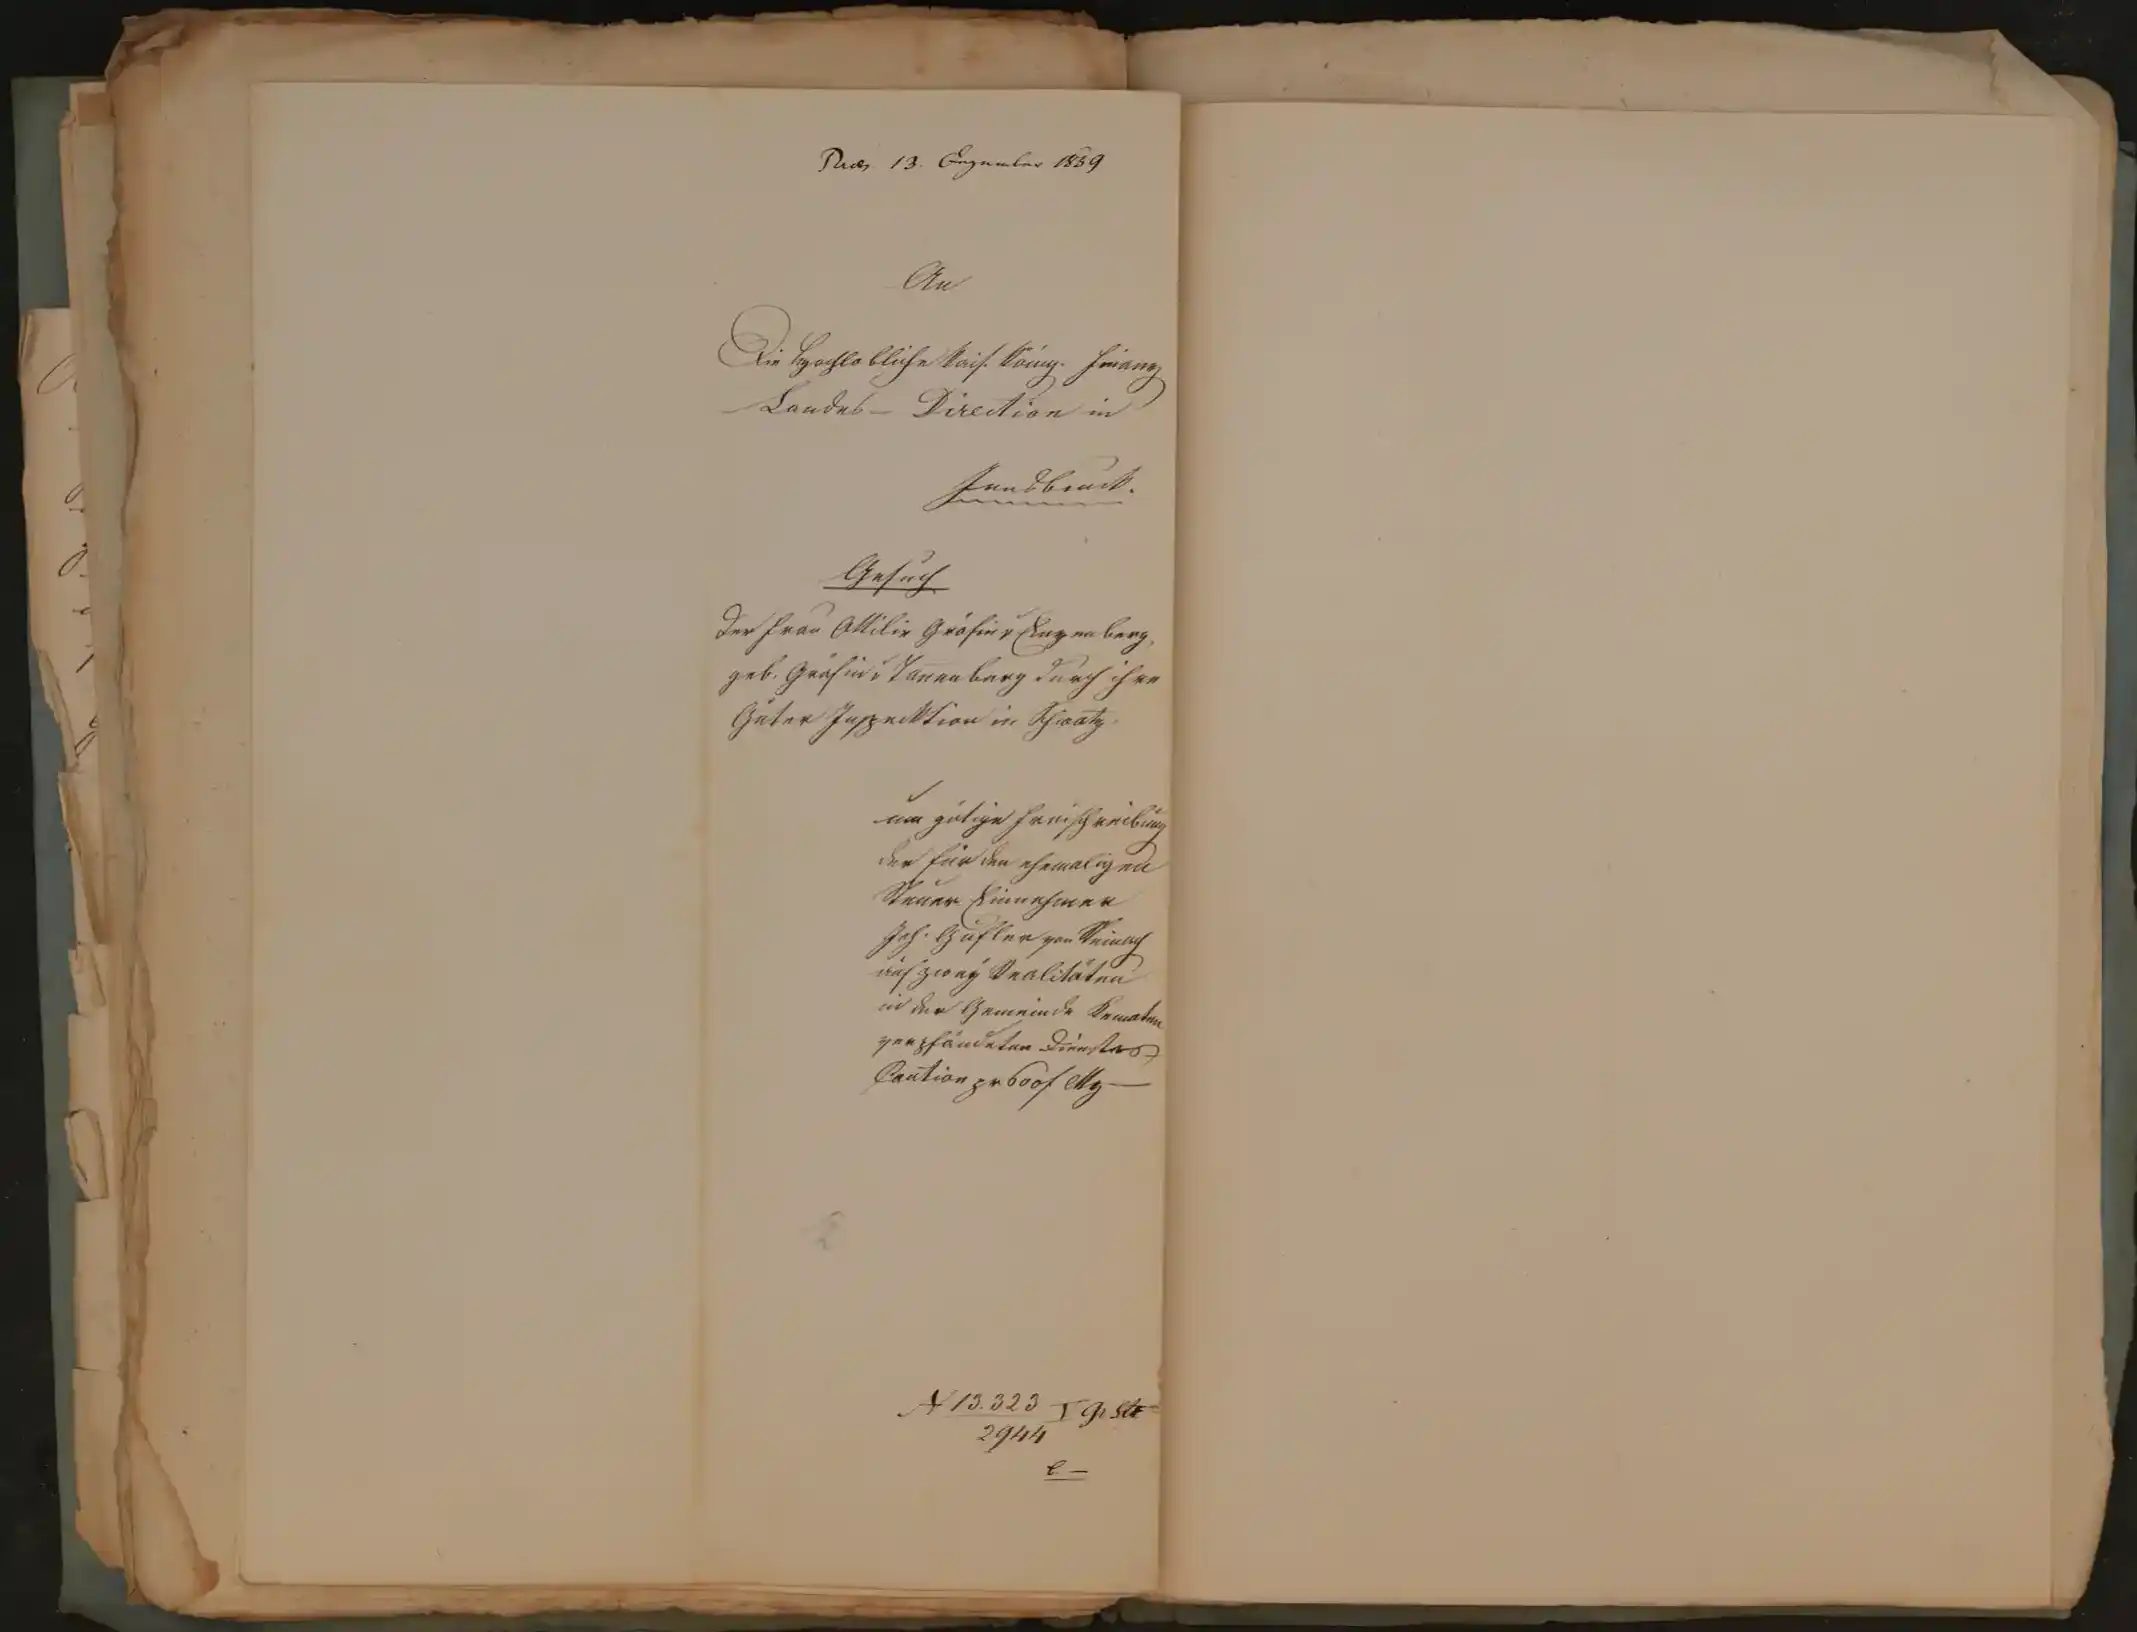 Präs. 13. Dezember 1859
An
Die Hochlobliche Kais. König. Finanz
Landes- Direction in
Innsbruck.
Gesuch
der Frau Ottilie Gräfin v Enzenberg,
geb. Gräfin v Tannenberg durch ihre
Güter Inspecktion in Schwatz.
um gütige Freischreibung
der für den ehemaligen
Steuer Einnehmer
Joh. Gufler von Steinach
auf zwey Realitäten
in der Gemeinde Kematen
verpfändeten Dienstes-
Caution pr 600 f
N 13.323
2944